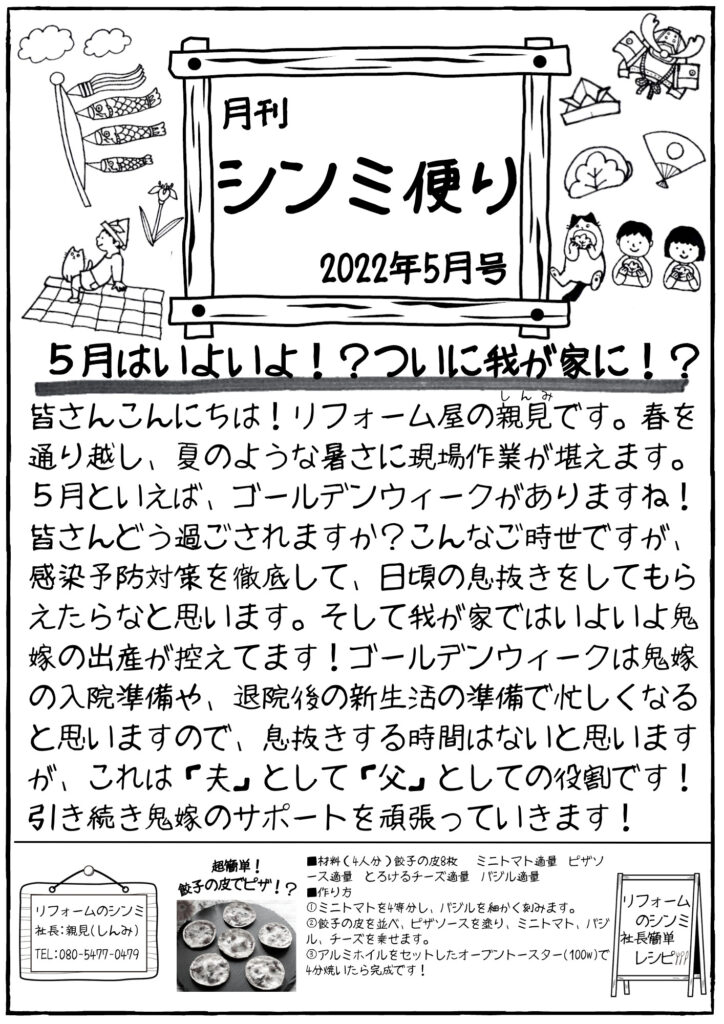 月刊
シンミ便り
2022年5月号
５月はいよいよ！？ついに我が家に！？
しんみ
皆さんこんにちは！リフォーム屋の親見です。春を
通り越し、夏のような暑さに現場作業が堪えます。
５月といえば、ゴールデンウィークがありますね！
皆さんどう過ごされますか？こんなご時世ですが、
感染予防対策を徹底して、日頃の息抜きをしてもら
えたらなと思います。そして我が家ではいよいよ鬼
嫁の出産が控えてます！ゴールデンウィークは鬼嫁
の入院準備や、退院後の新生活の準備で忙しくなる
と思いますので、息抜きする時間はないと思います
が、これは『夫』として『父』としての役割です！
引き続き鬼嫁のサポートを頑張っていきます！
リフォームのシンミ
社長：親見(しんみ)
TEL：080-5477-0479
超簡単！
餃子の皮でピザ！？
■材料（4人分）餃子の皮8枚　ミニトマト適量　ピザソ
ース適量　とろけるチーズ適量　バジル適量
■作り方
①ミニトマトを4等分し、バジルを細かく刻みます。
②餃子の皮を並べ、ピザソースを塗り、ミニトマト、バジ
ル、チーズを乗せます。
③アルミホイルをセットしたオーブントースター(100W)で
4分焼いたら完成です！
リフォーム
のシンミ
社長簡単
レシピ♪♪♪